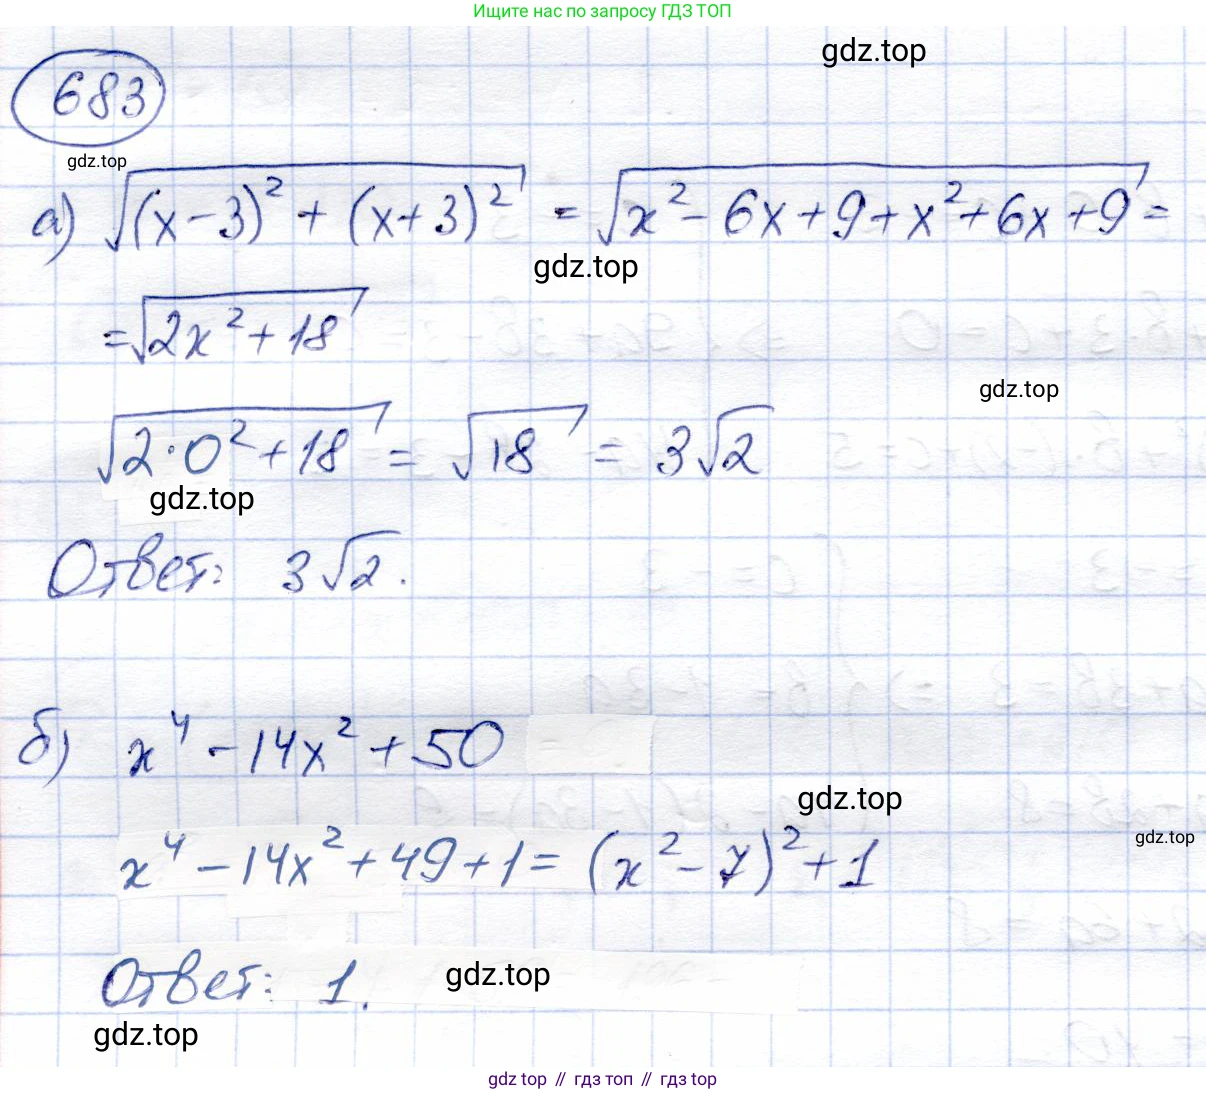 Ищите нас по запросу ГДЗ ТОП
gdz.top
683
gdz.top
а) √((x-3)² + (x+3)²) = √(x² - 6x + 9 + x² + 6x + 9) =
gdz.top
= √(2x² + 18)
gdz.top
√(2·0² + 18) = √18 = 3√2
gdz.top
Ответ: 3√2.
б) x⁴ - 14x² + 50
gdz.top
gdz.top
x⁴ - 14x² + 49 + 1 = (x² - 7)² + 1
Ответ: 1.
gdz.top
gdz.top
gdz top // гдз топ // gdz top